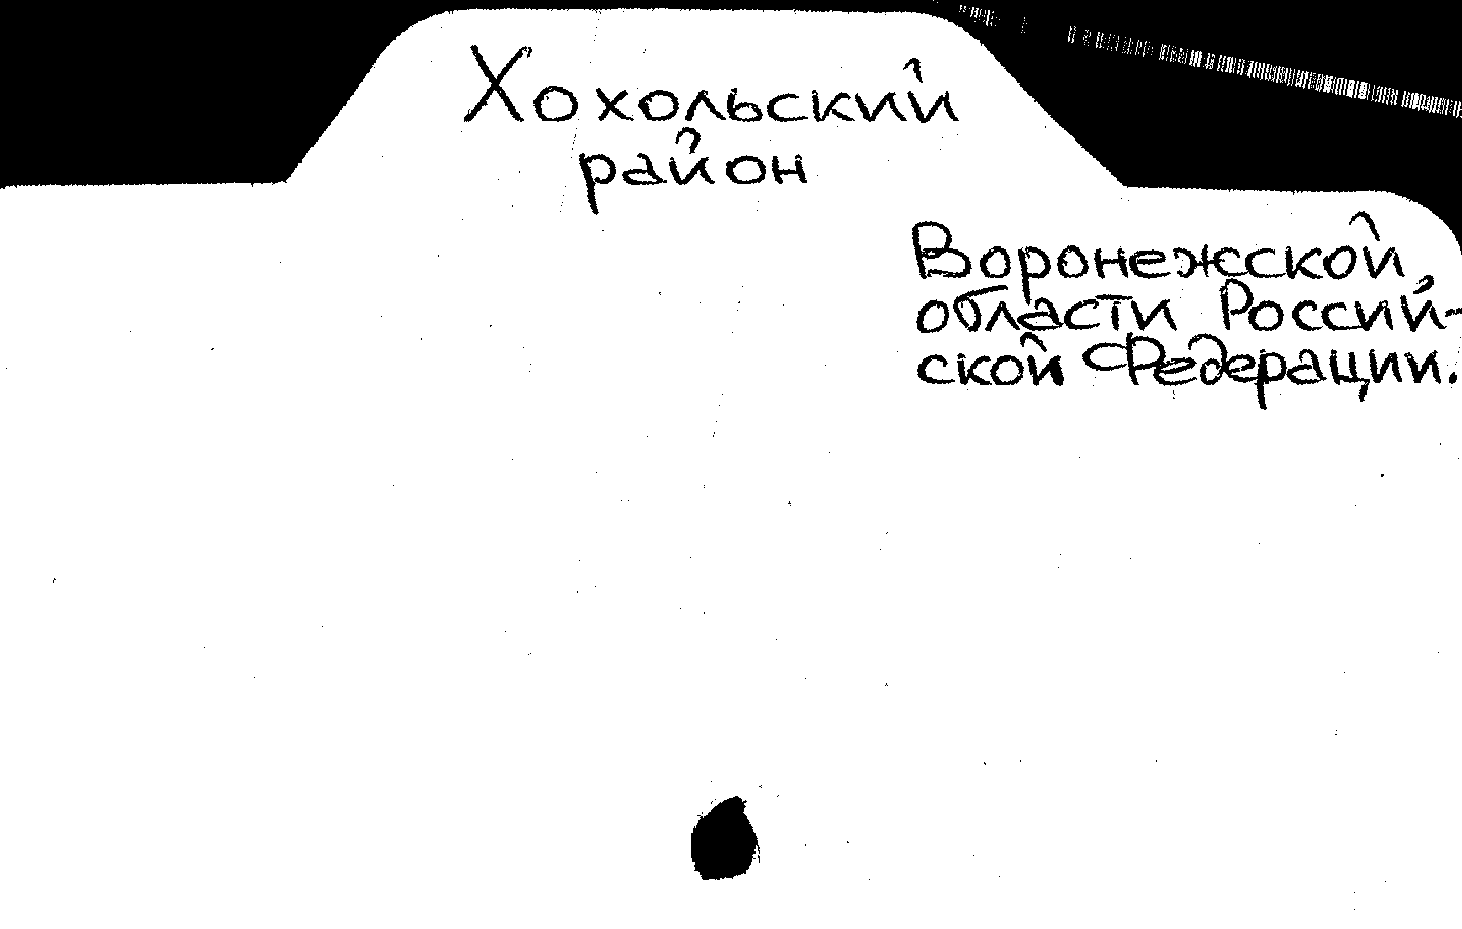 Хохольский
район
Воронежской
области Россий-
ской Федерации.